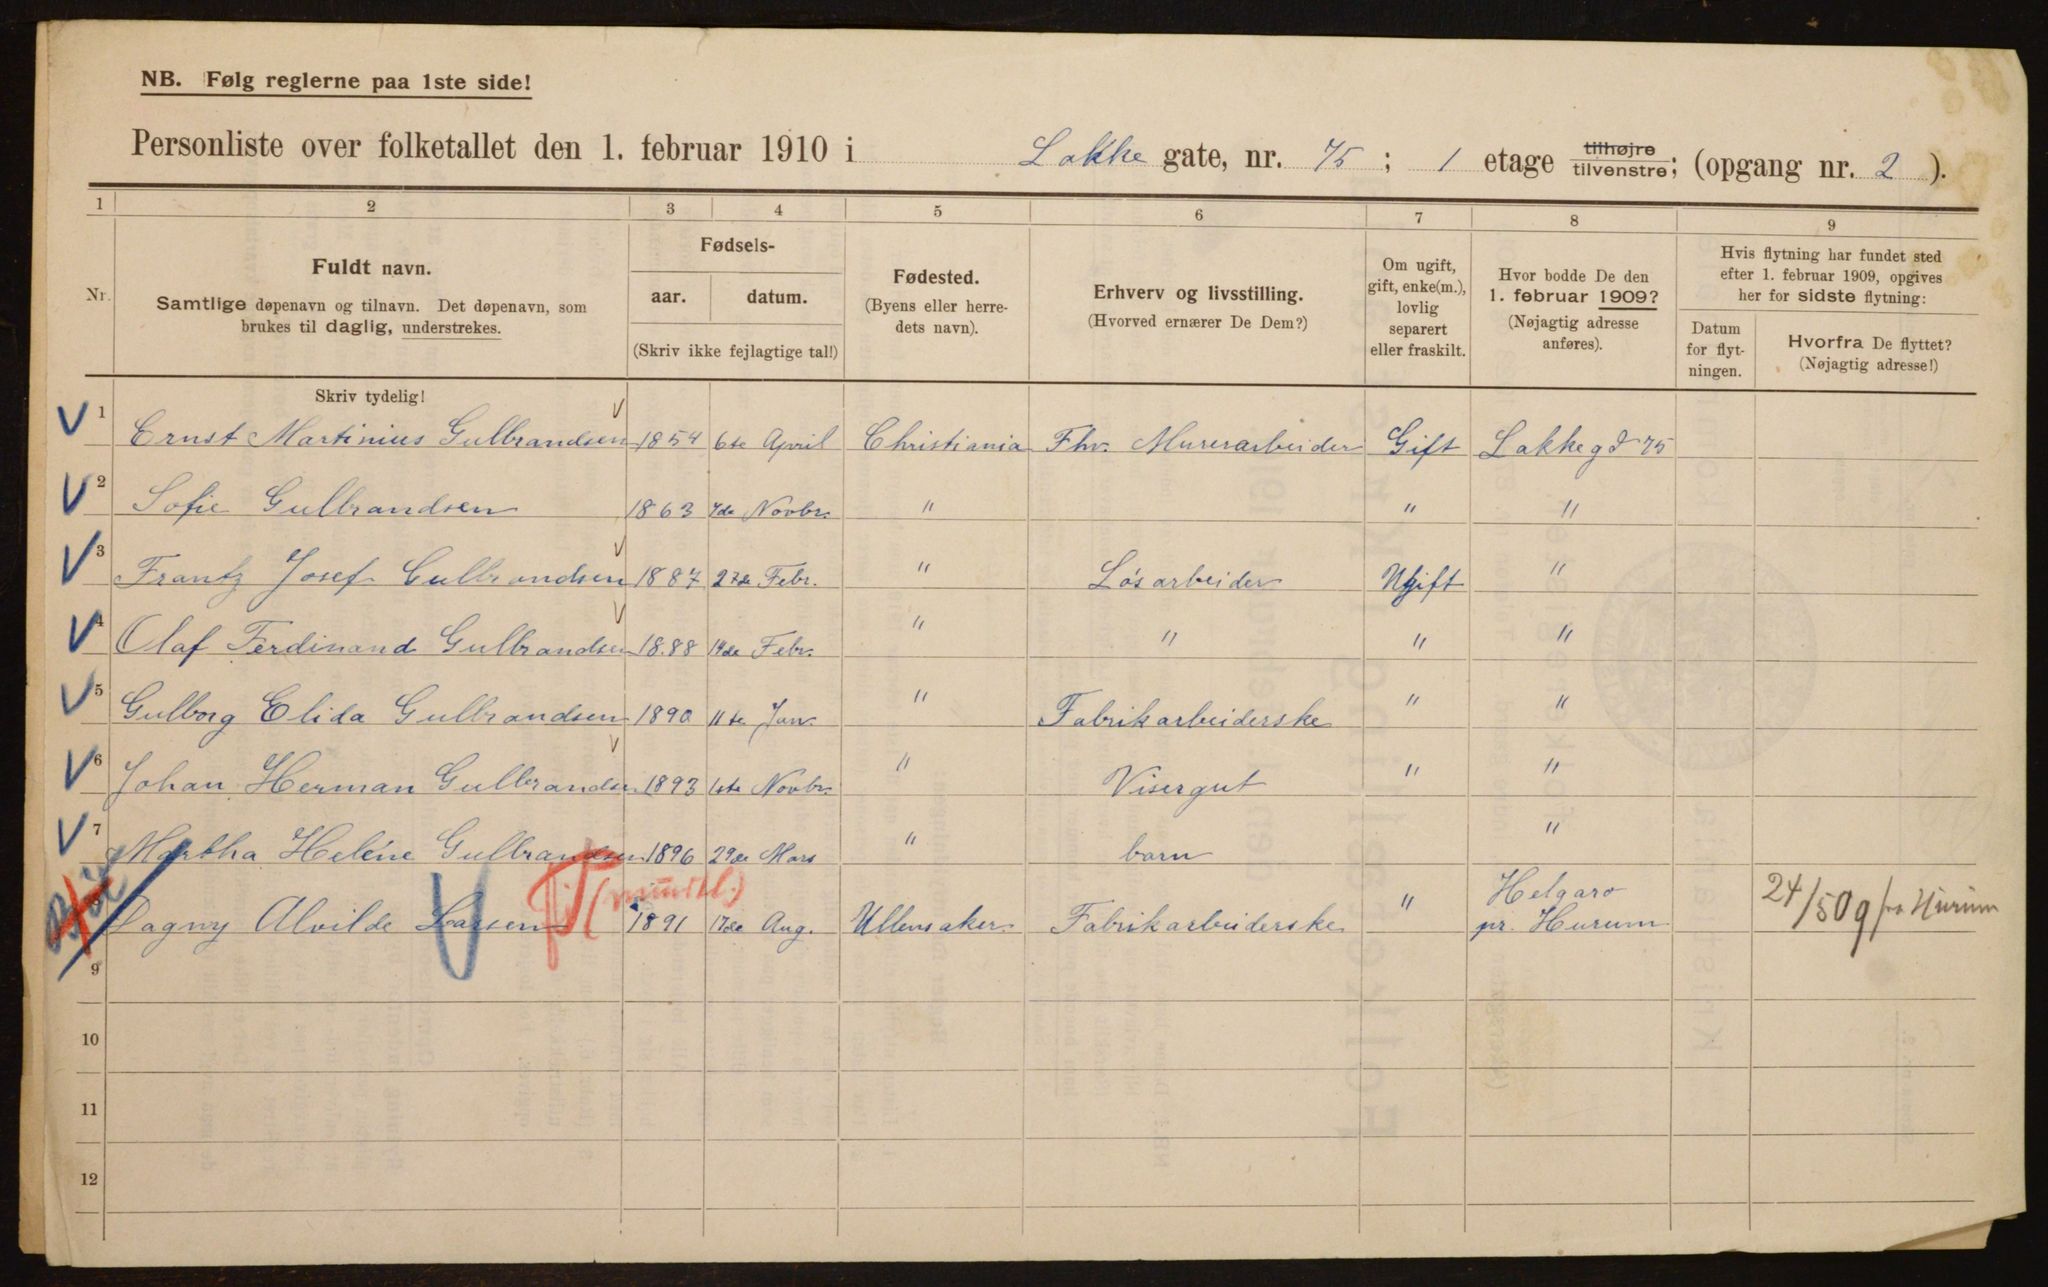 NB. Følg reglerne paa 1ste side!
Personliste over folketallet den 1. februar 1910 i Lakke gate, nr. 75 ; 1 etage tilhøjre tilvenstre; (opgang nr. 2 ).
1 2 3 4 5 6 7 8 9
Nr.
Fuldt navn.
Samtlige døpenavn og tilnavn. Det døpenavn, som
brukes til daglig, understrekes.
Skriv tydelig!
Fødsels-
aar. datum.
(Skriv ikke fejlagtige tal!)
Fødested.
(Byens eller herre-
dets navn).
Erhverv og livsstilling.
(Hvorved ernærer De Dem?)
Om ugift,
gift, enke(m.),
lovlig
separert
eller fraskilt.
Hvor bodde De den
1. februar 1909?
(Nøjagtig adresse
anføres).
Hvis flytning har fundet sted
efter 1. februar 1909, opgives
her for sidste flytning:
Datum
for flyt-
ningen.
Hvorfra De flyttet?
(Nøjagtig adresse!)
1 Ernst Martinius Gulbrandsen 1854 6te April Christiania Fhv. Murerarbeider Gift Lakkegd 75
2 Sofie Gulbrandsen 1863 7de Novbr. " " "
3 Frantz Josef Gulbrandsen 1887 27de Febr. " Løsarbeider Ugift "
4 Olaf Ferdinand Gulbrandsen 1888 14de Febr. " " " "
5 Gulborg Elida Gulbrandsen 1890 11te Jan. " Fabrikarbeiderske " "
6 Johan Herman Gulbrandsen 1893 1ste Novbr. " Visergut " "
7 Martha Heléne Gulbrandsen 1896 29de Mars " barn "
8 Dagny Alvilde Larsen (mundtl.) 1891 17de Aug. Ullensaker Fabrikarbeiderske " Helgaro pr. Hurum 24/5 09 fra Hurum
9
10
11
12